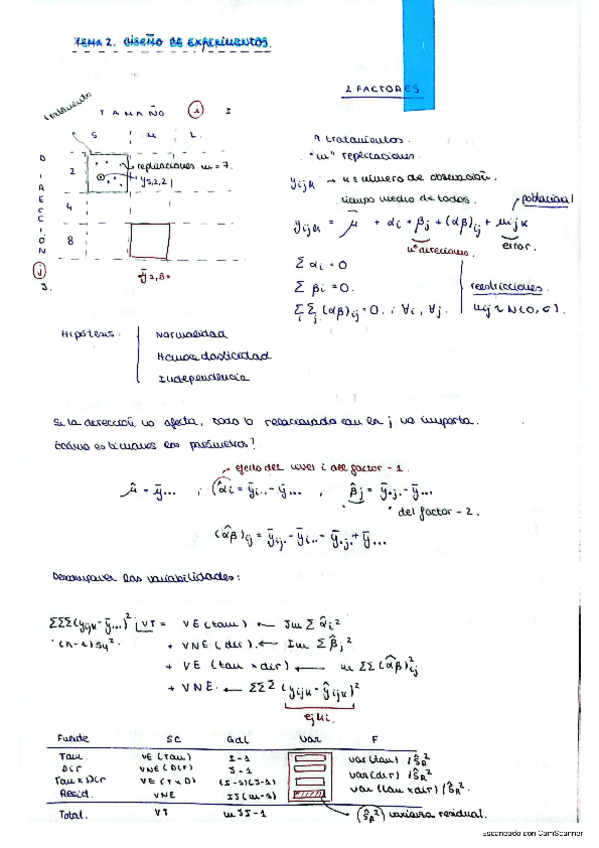 TEMA 2. DISEÑO DE EXPERIMENTOS.
2 FACTORES
tratamiento
TAMAÑO i I
S M L
DIRECCIÓN
2
4
8
j
3.
replicaciones m = 7.
y5,2,2
9 tratamientos.
"m" replicaciones
yijk → k = número de observación.
tiempo medio de todos.
poblacional
yijk = μ + αi + βj + (αβ)ij + uijk
error.
Σ αi = 0
Σ βi = 0.
ΣΣ (αβ)ij = 0. ; ∀i, ∀j.
i j
restricciones.
uij ~ N(0, σ).
Hipótesis:
Normalidad
Homocedasticidad
Independencia
Si la dirección no afecta, todo lo relacionado con la j no importa.
¿cómo estimamos los parámetros?
efecto del nivel i del factor - 1.
μ̂ = ȳ... ; α̂i = ȳi.. - ȳ... , β̂j = ȳ.j. - ȳ...
del factor - 2.
(α̂β)ij = ȳij. - ȳi.. - ȳ.j. + ȳ...
Descomponer las variabilidades:
ΣΣΣ(yijk - ȳ...)² ; VT = VE (tam) ← Jm Σ α̂i²
(n-1) Sy². + VNE (dir). ← Im Σ β̂j²
+ VE (tam x dir) ← m ΣΣ (α̂β)²ij
+ VNE. ← ΣΣΣ (yijk - ŷijk)²
Fuente SC Gdl Var F
Tam VE (Tam) I-1 var(tam) / ŜR²
Dir VNE (Dir) J-1 var(dir) / ŜR²
Tam x Dir VE (T x D) (I-1)(J-1) var (tam x dir) / ŜR²
Resid. VNE IJ(m-1)
Total. VT mIJ-1 (ŜR²) varianza residual.
Escaneado con CamScanner